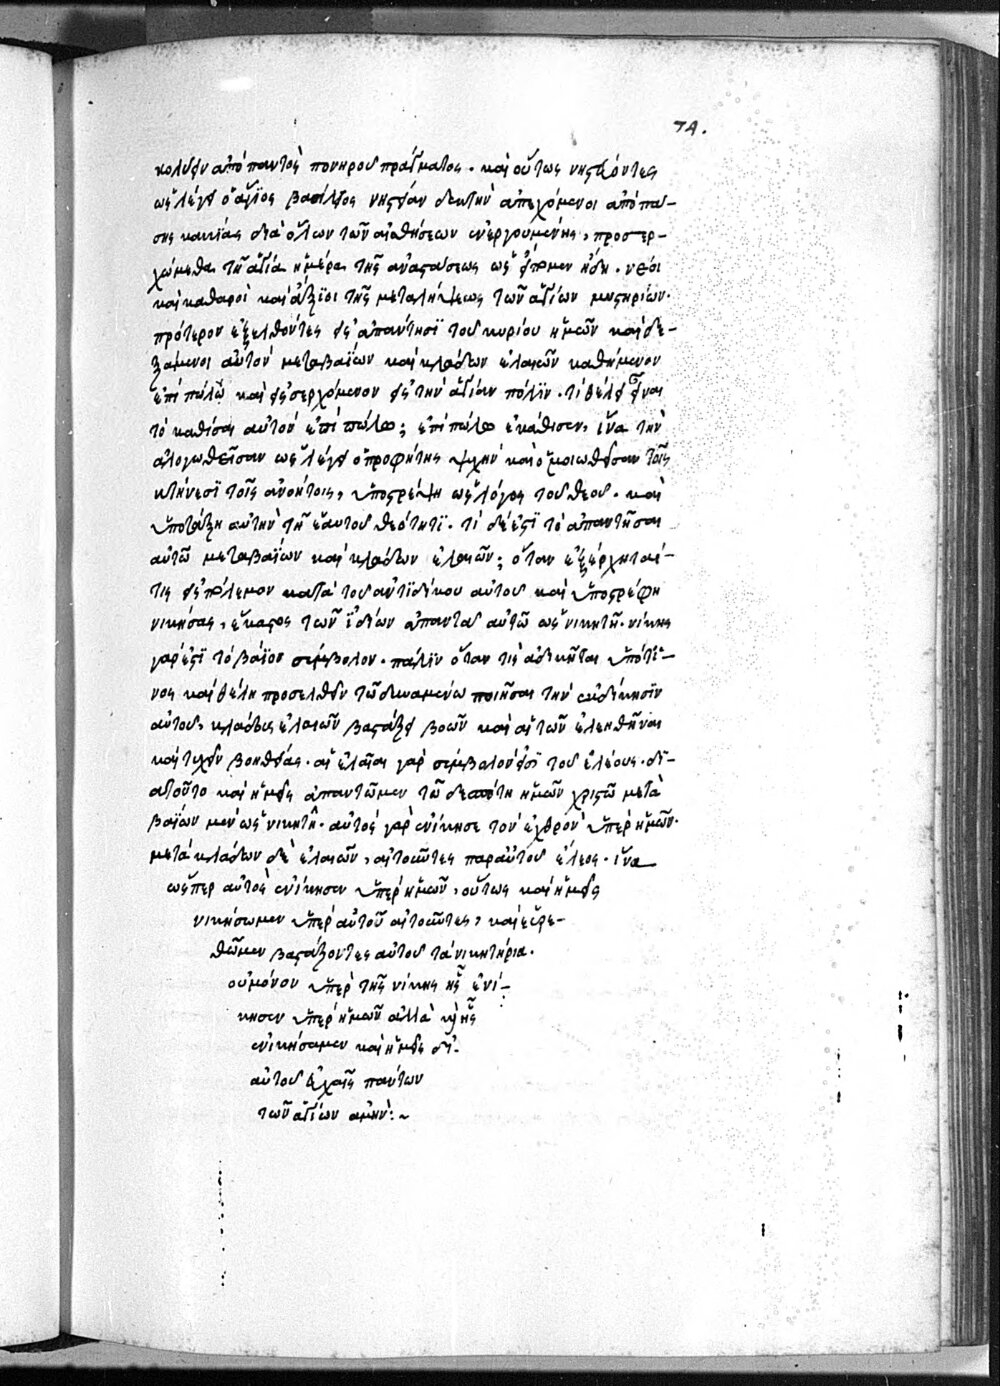 74.
κολυειν ἀπὸ παντὸς πονηροῦ πράγματος. καὶ οὕτως νηστεύοντες
ὡς λέγει ὁ ἅγϊος βασίλειος νηστείαν δεκτὴν ἀπεχόμενοι ἀπὸ πά-
σης κακίας διὰ ὅλων τῶν αἰσθήσεων ἐνεργουμένης, προσερ-
χώμεθα τῇ ἁγία ἡμέρα τῆς ἀναστάσεως ὡς εἴπομεν ἤδη. νέοι
καὶ καθαροὶ καὶ ἄξϊοι τῆς μεταλήψεως τῶν ἁγίων μυστηρίων.
πρότερον ἐξελθόντες εἰς ἀπάντησϊ τοῦ κυρίου ἡμῶν καὶ δε-
ξάμενοι αὐτὸν μετὰ βαΐων καὶ κλάδων ἐλαιῶν καθήμενον
ἐπὶ πώλῳ καὶ εἰσερχόμενον εἰς τὴν ἁγίαν πόλϊν. τί θέλει εἶναι
τὸ καθίσαι αὐτὸν ἐπὶ πώλω; ἐπὶ πώλω ἐκάθισεν, ἵνα τὴν
ἀλογωθεῖσαν ὡς λέγει ὁ προφήτης ψυχὴν καὶ ὁμοιωθεῖσαν τοῖς
κτήνεσϊ τοῖς ἀνοήτοις, ὑποστρέψη ὡς λόγος τοῦ θεοῦ. καὶ
ὑποτάξη αὐτὴν τῇ ἑαυτοῦ θεότητϊ. τί δέ ἐστϊ τὸ ἀπαντῆσαι
αὐτῶ μετὰ βαΐων καὶ κλάδων ἐλαιῶν; ὅταν ἐξέρχηταί
τις εἰς πόλεμον κατὰ τοῦ ἀντϊδίκου αὐτοῦ καὶ ὑποστρέφη
νικήσας, ἕκαστος τῶν ἰδίων ἀπαντᾶ αὐτῶ ὡς νικητῇ. νίκης
γάρ ἐστϊ τὸ βαΐον σύμβολον. πάλϊν ὅταν τὶς ἀδικῆται ὑπό τϊ-
νος καὶ θέλη προσελθεῖν τῶ δυναμένω ποιῆσαι τὴν ἐκδίκησϊν
αὐτοῦ, κλάδους ἐλαιῶν βαστάζει βοῶν καὶ αἰτῶν ἐλεηθῆναι
καὶ τυχεῖν βοηθείας. αἱ ἐλαῖαι γὰρ σύμβολόν εἰσϊ τοῦ ἐλέους. δϊ-
ατοῦτο καὶ ἡμεῖς ἀπαντῶμεν τῶ δεσπότη ἡμῶν χριστῶ μετὰ
βαΐων μὲν ὡς νικητῆ. αὐτὸς γὰρ ἐνίκησε τὸν ἐχθρὸν ὑπὲρ ἡμῶν.
μετὰ κλάδων δὲ ἐλαιῶν, αἰτοῦντες παρ αὐτοῦ ἔλεος. ἵνα
ὥσπερ αὐτὸς ἐνίκησεν ὑπὲρ ἡμῶν, οὕτως καὶ ἡμεῖς
νικήσωμεν ὑπὲρ αὐτοῦ αἰτοῦντες, καὶ εὑρε-
θῶμεν βαστάζοντες αὐτοῦ τὰ νικητήρια.
οὐ μόνον ὑπὲρ τῆς νίκης ἧς ἐνί-
κησεν ὑπὲρ ἡμῶν ἀλλὰ κὴ ἧς
ἐνικήσαμεν καὶ ἡμεῖς δϊ
αὐτοῦ εὐχαῖς πάντων
τῶν ἁγίων ἀμήν:~